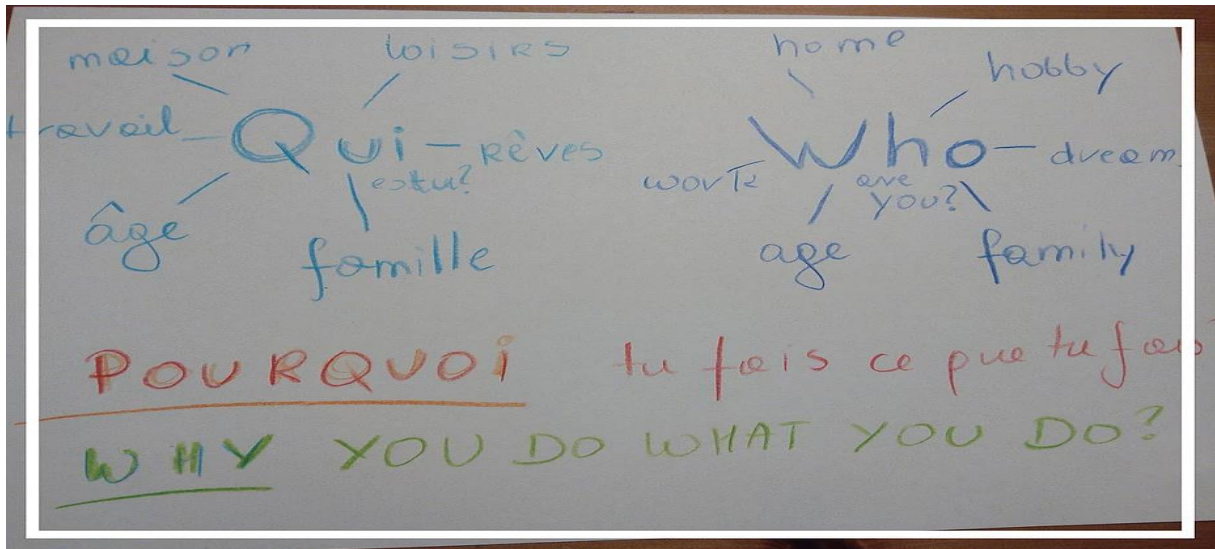 maison loisirs
travail Qui rêves
es tu?
âge famille
home hobby
work Who dream
are
you?
age family
POURQUOI tu fais ce que tu fais
WHY YOU DO WHAT YOU DO?